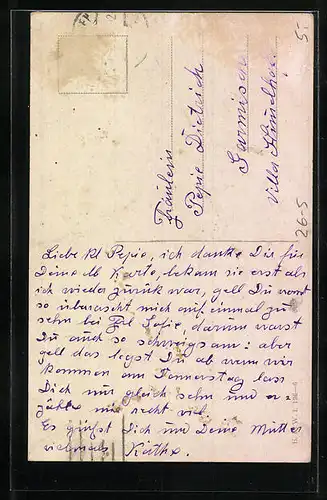 5.
Fräulein
Pepie Dietrich
Garmisch
Villa
26-5
Liebe kl Pepie, ich danke Dir für
Deine lb Karte, bekam sie erst als
ich wieder zurück war, gell Du warst
so überrascht mich auf einmal zu
sehn bei Frl Sofie, darum warst
Du auch so schweigsam: aber
gell das legst Du ab wenn wir
kommen am Donnerstag lass
Dich nur gleich sehn und er-
zähle mir recht viel.
Es grüßt Dich und Deine Mutter
vielmals Käthe